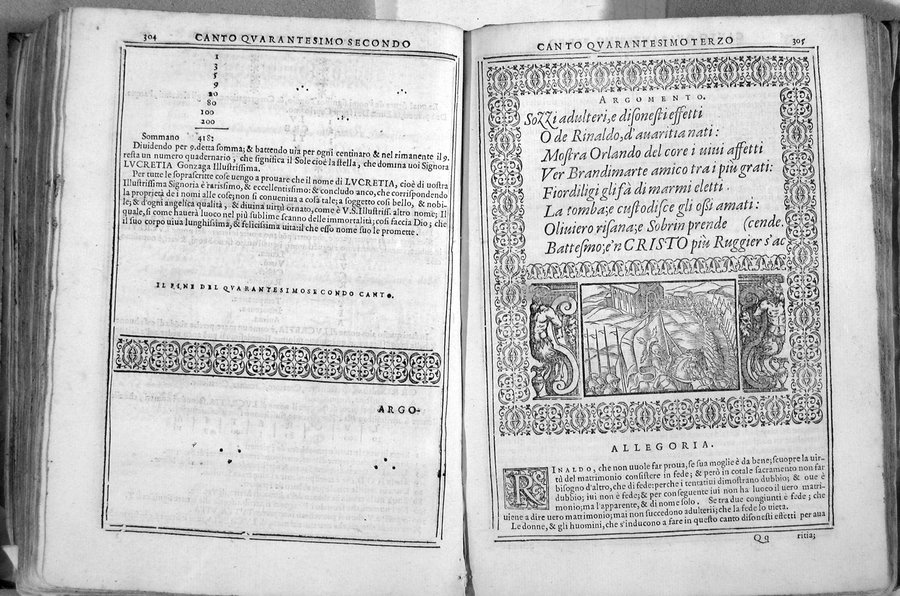 304 CANTO QVARANTESIMO SECONDO
1
3
5
9
20
80
100
200
Sommano 418?
Dividendo per 9. detta somma; & battendo uia per ogni centinaro & nel rimanente il 9.
resta un numero quadernario, che significa il Sole cioè la stella, che domina uoi Signora
LVCRETIA Gonzaga Illustrissima.
Per tutte le soprascritte cose uengo a prouare che il nome di LVCRETIA, cioè di uostra
Illustrissima Signoria è rarissimo, & eccellentissimo: & concludo anco, che corrispondendo
la proprietà de i nomi alle cose; non si conueniua a cosa tale; a soggetto così bello, & nobi-
le, & d'ogni angelica qualità, & diuina uirtù ornato, come è V.S. Illustriss. altro nome; Il
quale, si come hauerà luoco nel più sublime scanno delle immortalità; così faccia Dio; che
il suo corpo uiua lunghissima, & felicissima uita: il che esso nome suo le promette.
IL FINE DEL QVARANTESIMOSECONDO CANTO.
ARGO-
CANTO QVARANTESIMOTERZO 305
ARGOMENTO.
Sozzi adulteri, e disonesti effetti
O de Rinaldo, d'auaritia nati:
Mostra Orlando del core i uiui affetti
Ver Brandimarte amico tra i più grati:
Fiordiligi gli fà di marmi eletti
La tomba; e custodisce gli ossi amati:
Oliuiero risana; e Sobrin prende (cende.
Battesmo; e'n CRISTO più Ruggier s'ac
ALLEGORIA.
RINALDO, che non uuole far proua, se sua moglie è da bene; scuopre la uir-
tù del matrimonio consistere in fede; & però in cotale sacramento non far
bisogno d'altro, che di fede: perche i tentatiui dimostrano dubbio; & oue è
dubbio; iui non è fede; & per conseguente iui non ha luoco il uero matri-
monio; ma l'apparente, & di nome solo. Se tra due congiunti è fede; che
uiene a dire uero matrimonio; mai non succedono adulterii; che la fede lo uieta.
Le donne, & gli huomini, che s'inducono a fare in questo canto disonesti effetti per aua
Qq ritia;